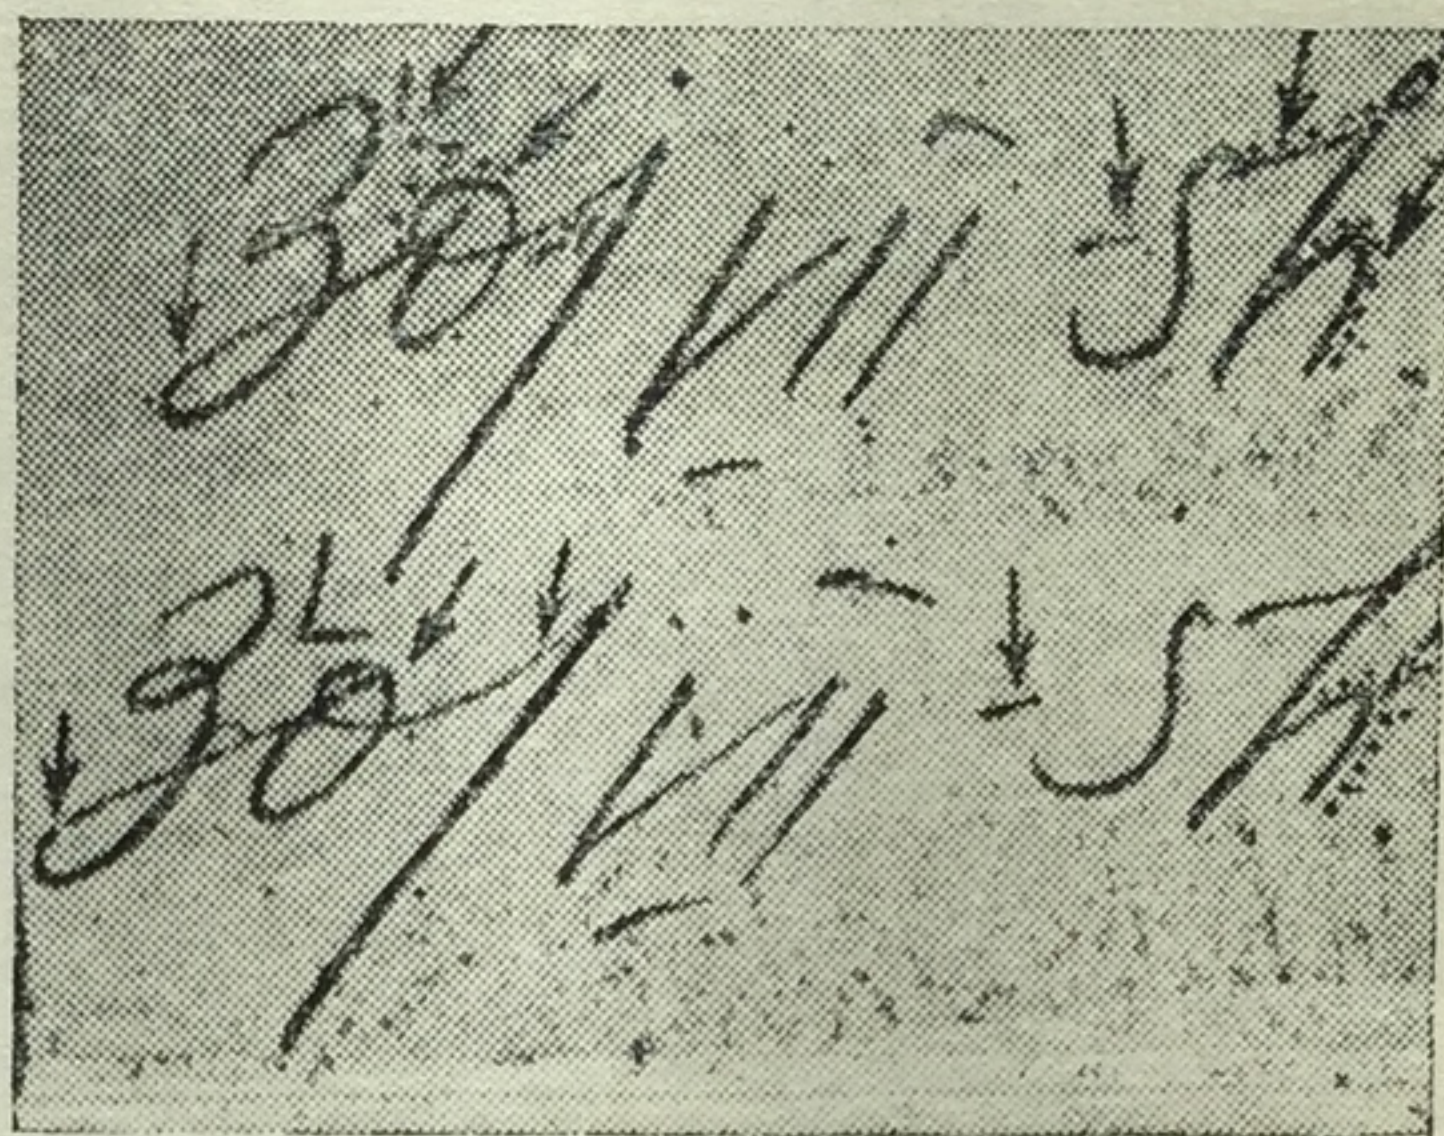 30/VII-57
30/VII-57